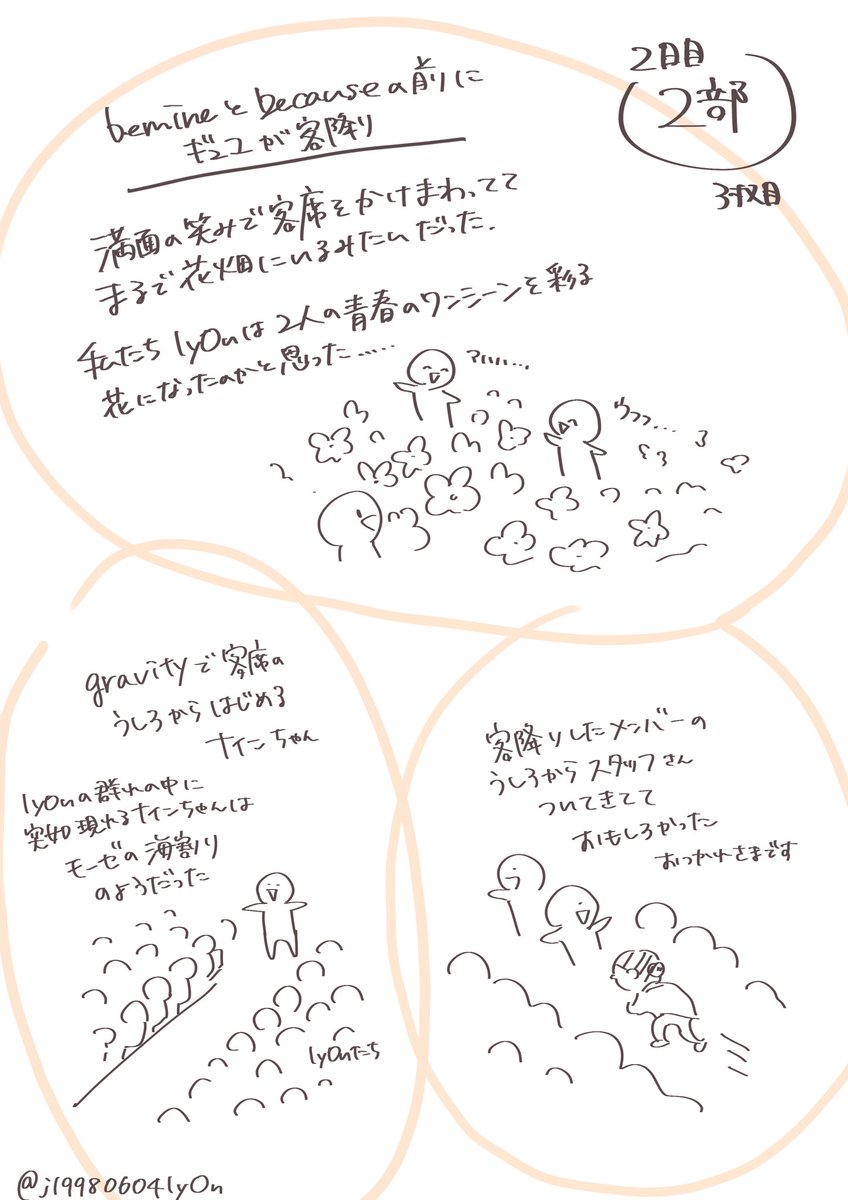 2日目
2部
3枚目
bemineとbecauseの前に
ギュユが客降り
満面の笑みで客席をかけまわってて
まるで花畑にいるみたいだった.
私たちlyOnは2人の青春のワンシーンを彩る
花になったのかと思った.....
ウフフ...
gravityで客席の
うしろからはじめる
ナインちゃん
lyOnの群れの中に
突如現れるナインちゃんは
モーゼの海割り
のようだった
lyOnたち
客降りしたメンバーの
うしろからスタッフさん
ついてきてて
おもしろかった
おつかれさまです
@j19980604lyOn